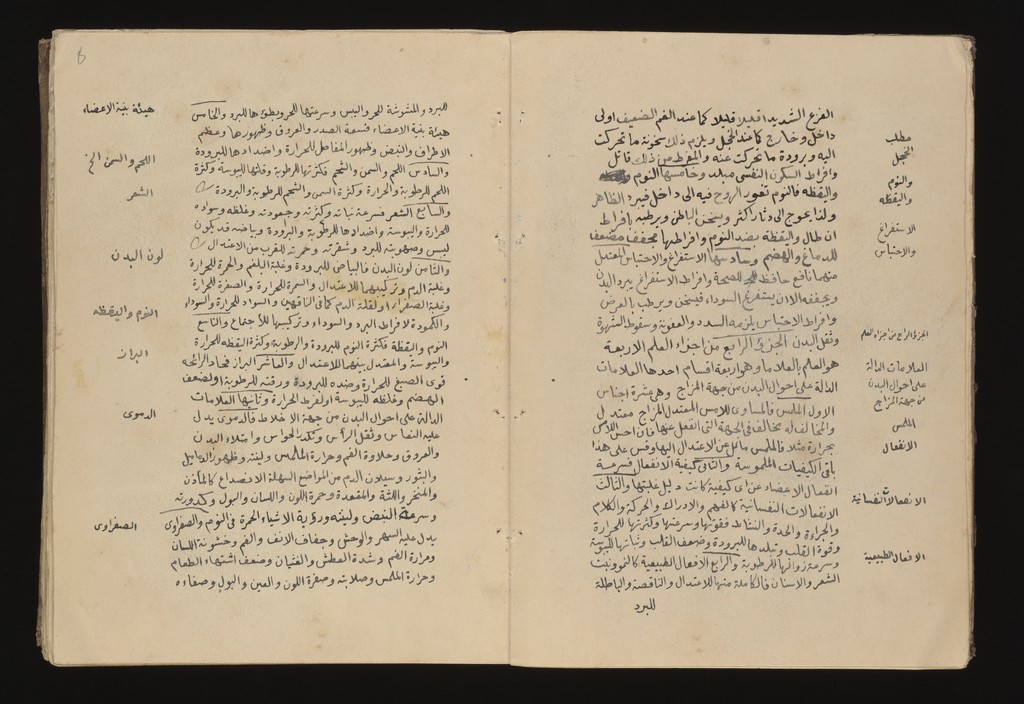 الفزع الشديد او قليلا قليلا كما عند الغم الضعيف او الى
مطلب
داخل وخارج كما عند الخجل ويلزم ذلك سخونة ما تحركت
الخجل
اليه وبرودة ما تحركت عنه والمفرط من ذلك قاتل
والنوم
وافراط السكون النفسي مبلد وخامسها النوم
واليقظه
واليقظه فالنوم تغور الروح فيه الى داخل فيبرد الظاهر
ولذا يحوج الى دثار اكثر ويسخن الباطن ويرطب بافراط
الاستفراغ
ان طال واليقظة بضد النوم وافراطها مجفف مضعف
والاحتباس
للدماغ والهضم وسادسها الاستفراغ والاحتباس المعتدل
منهما نافع حافظ للصحة وافراط الاستفراغ يبرد البدن
ويجففه الا ان يستفرغ السوداء فيسخن ويرطب بالعرض
وافراط الاحتباس يلزمه السدد والعفونة وسقوط الشهوة
الجزء الرابع من اجزاء العلم
وثقل البدن الجزء الرابع من اجزاء العلم الاربعة
العلامات الدالة
هو العلم بالعلامات وهو اربعة اقسام احدها العلامات
على احوال البدن
الدالة على احوال البدن من جهة المزاج وهو عشرة اجناس
من جهة المزاج
الاول الملمس فالمساوى للامس المعتدل المزاج معتدل
الملمس
والمخالف له مخالف في الجهة التي انفعل عنها فان احس اللامس
الانفعال
بحرارة مثلا فالملمس مائل عن الاعتدال اليها وقس على هذا
باقي الكيفيات الملموسة والثاني كيفية الانفعال فسرعة
انفعال الاعضاء عن اى كيفية كانت دليل غلبتها والثالث
الانفعالات النفسانية
الانفعالات النفسانية كالفهم والادراك والحركة والكلام
والجراءة والحدة والنشاط فقوتها وسرعتها وكثرتها للحرارة
وقوة القلب وتبلدها للبرودة وضعف القلب وثباتها لليبوسة
الافعال الطبيعية
وسرعة زوالها للرطوبة والرابع الافعال الطبيعية كالنمو ونبت
الشعر والاسنان فالكاملة منها للاعتدال والناقصة والباطلة
للبرد
8
للبرد والمشوشة للحر واليبس وسرعتها للحر وبطؤها للبرد والخامس
هيئة بنية الاعضاء
هيئة بنية الاعضاء فسعة الصدر والعروق وظهورها وعظم
الاطراف والنبض وظهور المفاصل للحرارة واضدادها للبرودة
اللحم والسمن الخ
والسادس اللحم والسمن والشحم فكثرتها للرطوبة وقلتها لليبوسة وكثرة
اللحم للرطوبة والحرارة وكثرة السمن والشحم للرطوبة والبرودة
الشعر
والسابع الشعر فسرعة نباته وكثرته وجعودته وغلظه وسواده
للحرارة واليبوسة واضدادها للرطوبة والبرودة وبياضه قد يكون
ليبس وصهوبته للبرد وشقرته وحمرته للقرب من الاعتدال
لون البدن
والثامن لون البدن فالبياض للبرودة وغلبة البلغم والحمرة للحرارة
وغلبة الدم وتركيبهما للاعتدال والسمرة للحرارة والصفرة للحرارة
وغلبة الصفراء او لقلة الدم كما في الناقهين والسواد للحرارة والسوداء
النوم واليقظه
والكمودة لافراط البرد والسوداء وتركيبها للاجتماع والتاسع
النوم واليقظة فكثرة النوم للبرودة والرطوبة وكثرة اليقظه للحرارة
البراز
واليبوسة والمعتدل بينهما للاعتدال والعاشر البراز فحاد الرائحه
قوى الصبغ للحرارة وضده للبرودة ورقته للرطوبة او لضعف
الهضم وغلظه لليبوسة او لفرط الحرارة وثانيها العلامات
الدموى
الدالة على احوال البدن من جهة الاخلاط فالدموى يدل
عليه النعاس وثقل الرأس وتكدر الحواس وامتلاء البدن
والعروق وحلاوة الفم وحرارة الملمس ولينته وظهور الدماميل
والبثور وسيلان الدم من المواضع السهلة الانصداع كالمأذن
والمنخر واللثة والمقعدة وحمرة اللون واللسان والبول وكدورته
الصفراوى
وسرعة النبض ولينته ورؤية الاشياء الحمرة في النوم والصفراوى
يدل عليه السهر والوحش وجفاف الانف والفم وخشونة اللسان
ومرارة الفم وشدة العطش والغثيان وضعف اشتهاء الطعام
وحرارة الملمس وصلابته وصفرة اللون والعين والبول وصفاءه